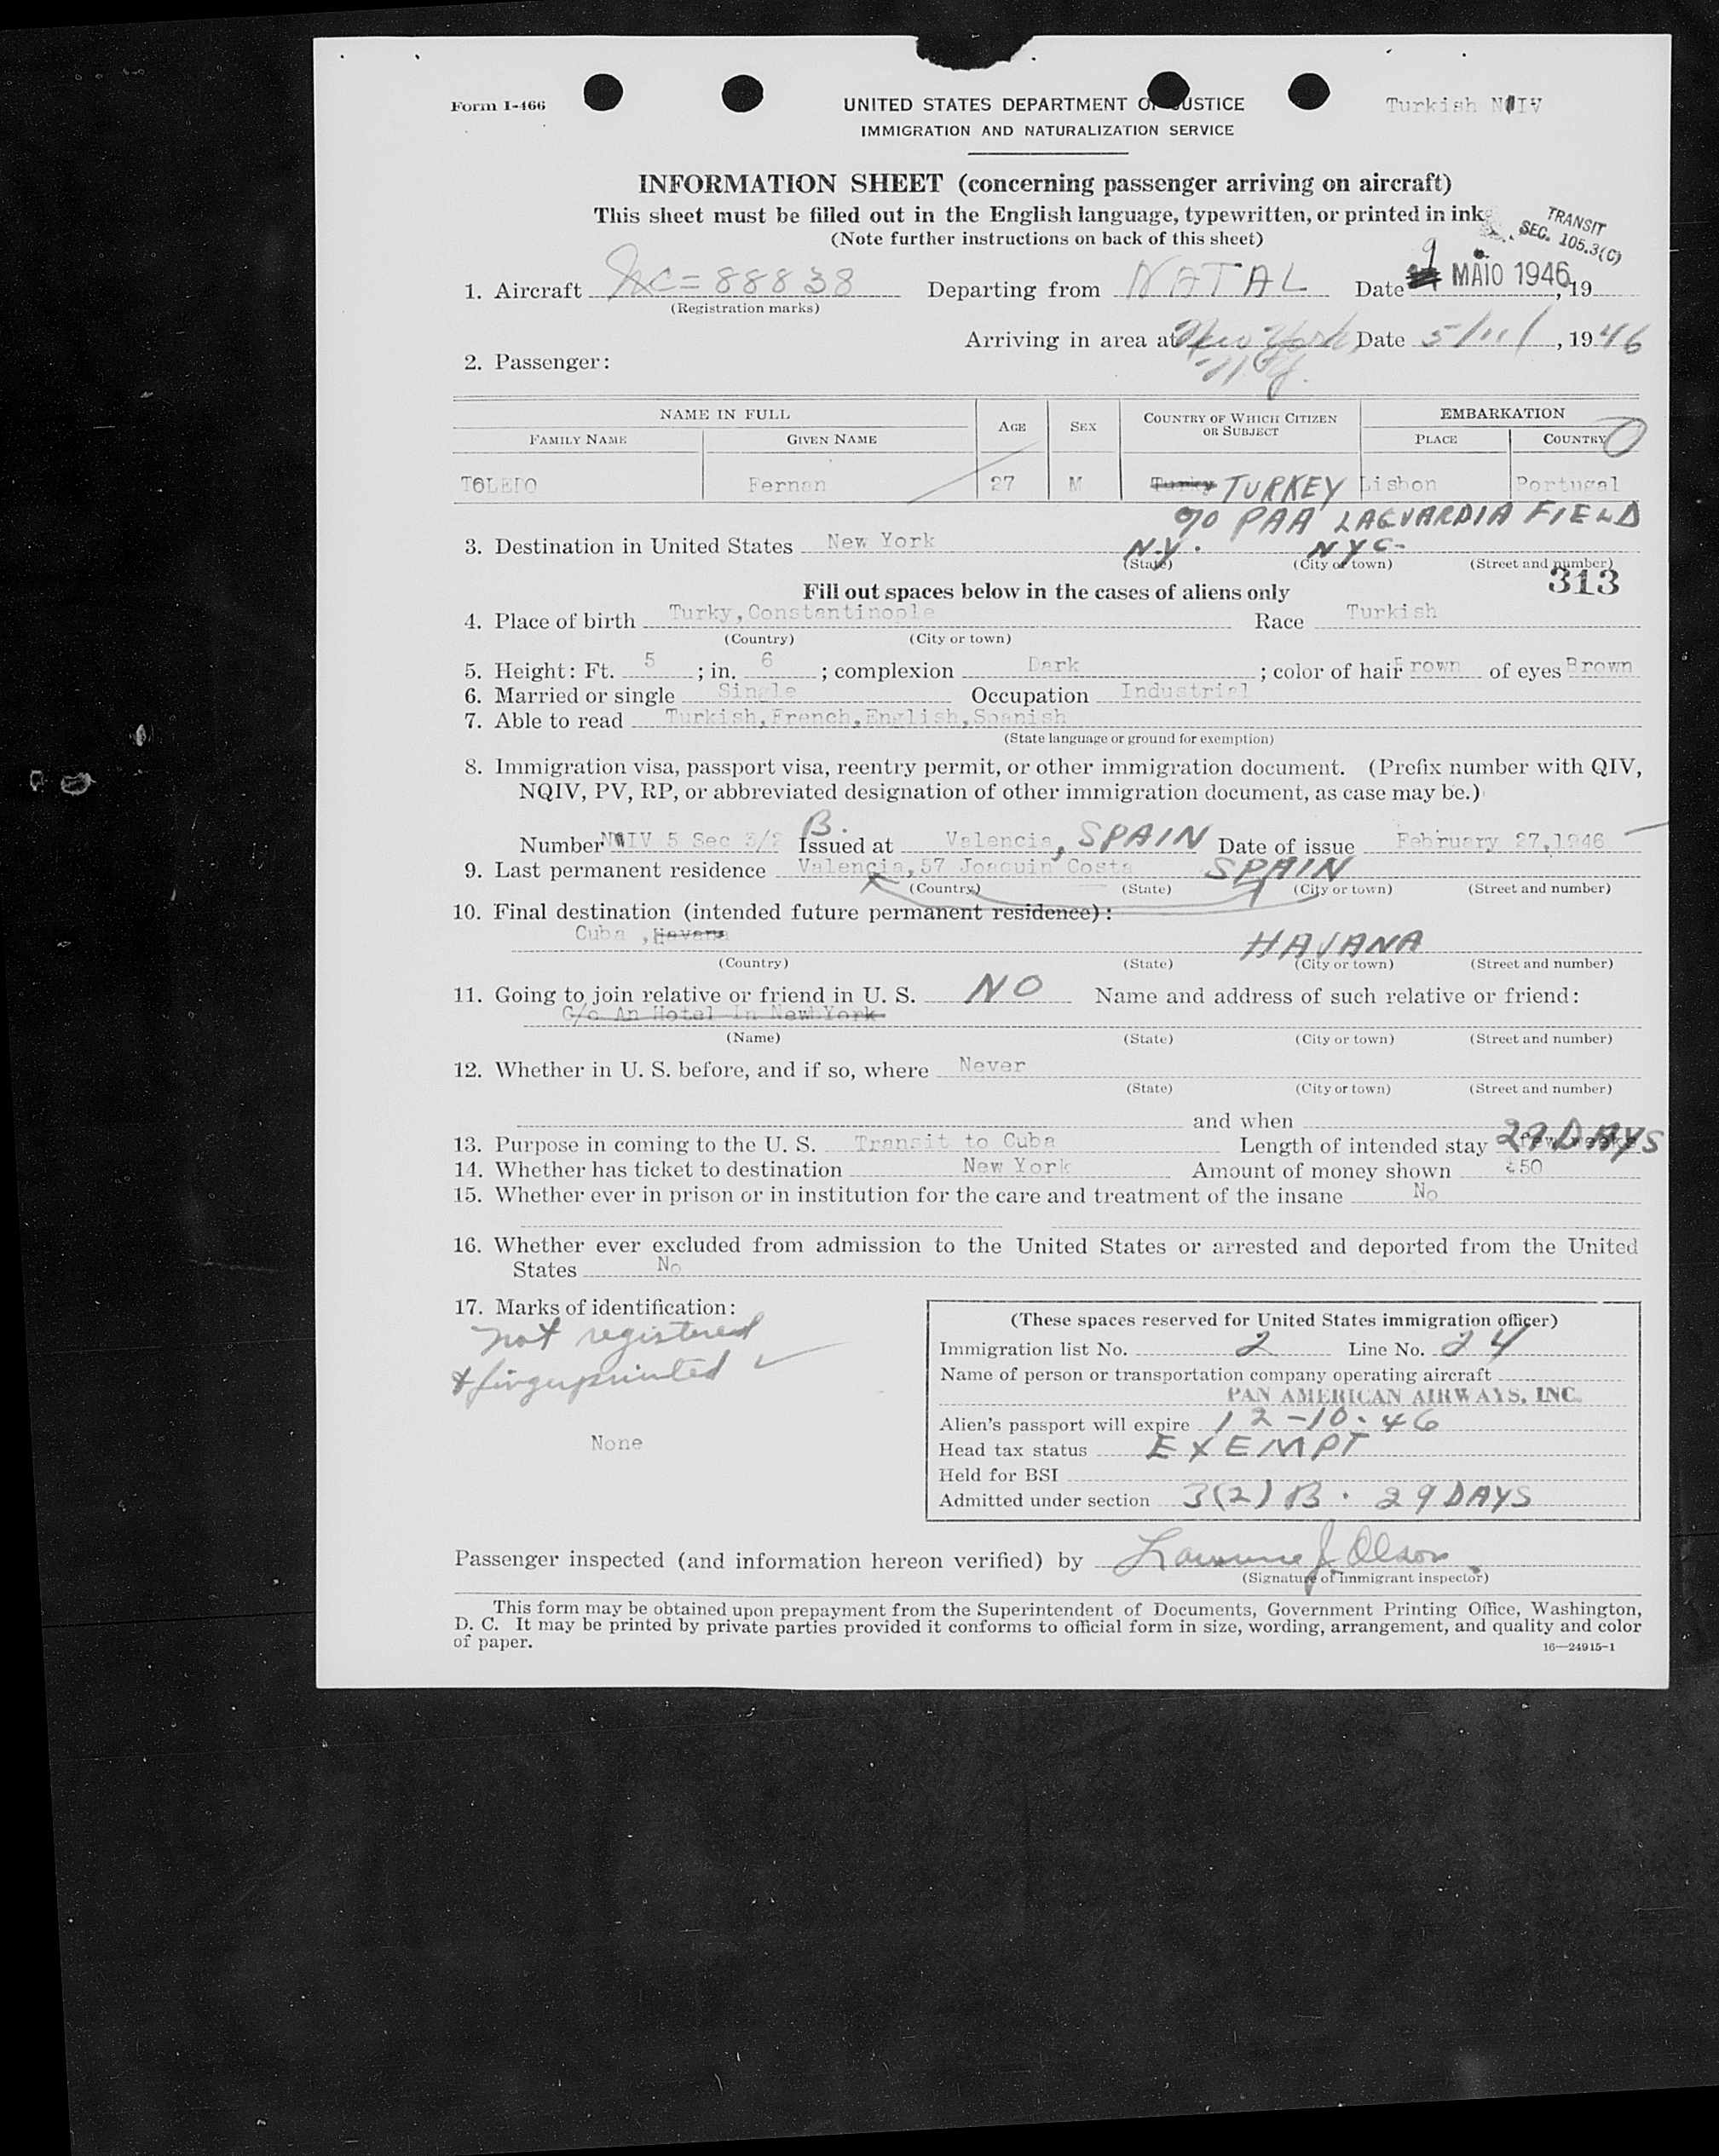 Form I-466
UNITED STATES DEPARTMENT OF JUSTICE
Turkish
IMMIGRATION AND NATURALIZATION SERVICE
INFORMATION SHEET (concerning passenger arriving on aircraft)
This sheet must be filled out in the English language, typewritten, or printed in ink
(Note further instructions on back of this sheet)
TRANSIT
SEC. 105.3(C)
1. Aircraft NC=88838 Departing from NATAL Date 9 MAIO 1946, 19
(Registration marks)
Arriving in area at New York Date 5/11/, 1946
N.Y.
2. Passenger:
NAME IN FULL AGE SEX COUNTRY OF WHICH CITIZEN OR SUBJECT EMBARKATION
FAMILY NAME GIVEN NAME PLACE COUNTRY
TOLEDO Fernan 27 M Turky TURKEY Lisbon Portugal
c/o PAA LAGUARDIA FIELD
3. Destination in United States New York N.Y. NYC-
(State) (City or town) (Street and number)
313
Fill out spaces below in the cases of aliens only
4. Place of birth Turky,Constantinople Race Turkish
(Country) (City or town)
5. Height: Ft. 5 ; in. 6 ; complexion Dark ; color of hair Brown of eyes Brown
6. Married or single Single Occupation Industrial
7. Able to read Turkish,French,English,Spanish
(State language or ground for exemption)
8. Immigration visa, passport visa, reentry permit, or other immigration document. (Prefix number with QIV,
NQIV, PV, RP, or abbreviated designation of other immigration document, as case may be.)
Number 5 Sec 3/2 B. Issued at Valencia, SPAIN Date of issue February 27,1946
9. Last permanent residence Valencia,57 Joaquin Costa SPAIN
(Country) (State) (City or town) (Street and number)
10. Final destination (intended future permanent residence):
Cuba ,Havana HAVANA
(Country) (State) (City or town) (Street and number)
11. Going to join relative or friend in U. S. NO Name and address of such relative or friend:
C/o An Hotel In New York
(Name) (State) (City or town) (Street and number)
12. Whether in U. S. before, and if so, where Never
(State) (City or town) (Street and number)
and when
13. Purpose in coming to the U. S. Transit to Cuba Length of intended stay few weeks 29 DAYS
14. Whether has ticket to destination New York Amount of money shown $50
15. Whether ever in prison or in institution for the care and treatment of the insane No
16. Whether ever excluded from admission to the United States or arrested and deported from the United
States No
17. Marks of identification:
not registered
& fingerprinted ✓
None
(These spaces reserved for United States immigration officer)
Immigration list No. 2 Line No. 24
Name of person or transportation company operating aircraft
PAN AMERICAN AIRWAYS, INC.
Alien's passport will expire 12-10-46
Head tax status EXEMPT
Held for BSI
Admitted under section 3(2) B. 29 DAYS
Passenger inspected (and information hereon verified) by Lawrence J. Olson
(Signature of immigrant inspector)
This form may be obtained upon prepayment from the Superintendent of Documents, Government Printing Office, Washington,
D. C. It may be printed by private parties provided it conforms to official form in size, wording, arrangement, and quality and color
of paper.
16—24915-1